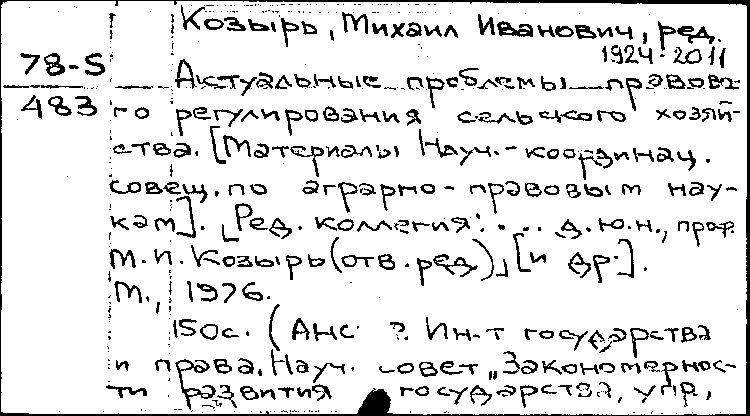 Козырь, Михаил Иванович, ред.
1924-2011
78-5
483
Актуальные проблемы правово-
го регулирования сельского хозяй-
ства. [Материалы Науч.-координац.
совещ. по аграрно-правовым нау-
кам]. [Ред. коллегия: ... д.ю.н., проф.
М.И. Козырь (отв. ред), [и др.].
М., 1976.
150с. (АНС ? Ин-т государства
и права. Науч. совет „Закономернос-
ти развития государства, упр,